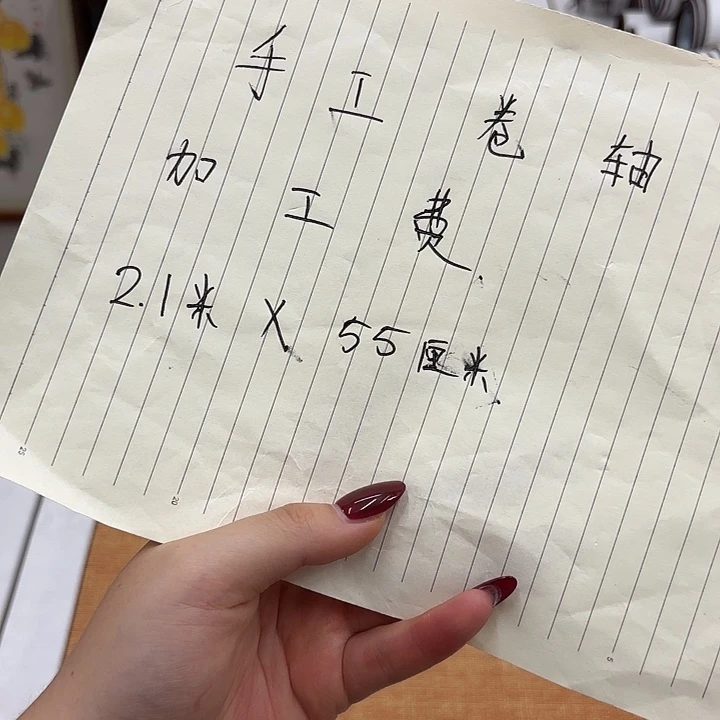 手工卷轴
加工费.
2.1米 X 55厘米.
25
20
5